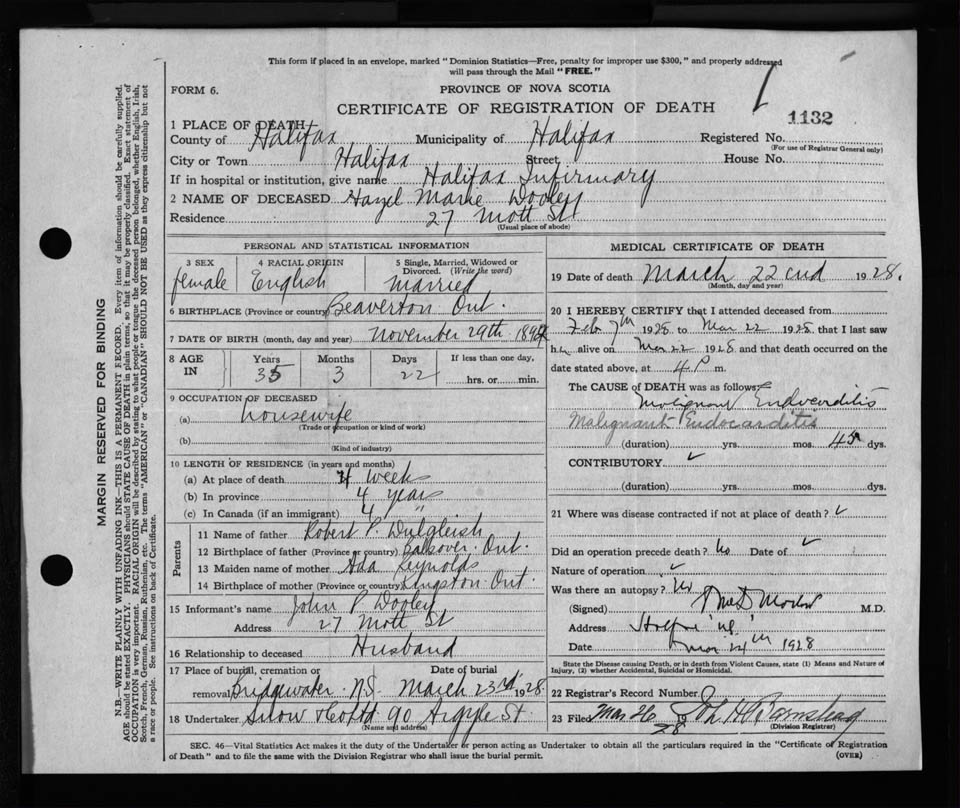 This form if placed in an envelope, marked "Dominion Statistics—Free, penalty for improper use $300," and properly addressed
will pass through the Mail "FREE."
FORM 6.
PROVINCE OF NOVA SCOTIA
CERTIFICATE OF REGISTRATION OF DEATH
1132
1 PLACE OF DEATH
County of Halifax Municipality of Halifax Registered No.
(For use of Registrar General only)
City or Town Halifax Street House No.
If in hospital or institution, give name Halifax Infirmary
2 NAME OF DECEASED Hazel Marie Dooley
Residence 27 Mott St
(Usual place of abode)
PERSONAL AND STATISTICAL INFORMATION
3 SEX 4 RACIAL ORIGIN 5 Single, Married, Widowed or
Divorced. (Write the word)
female English married
6 BIRTHPLACE (Province or country) Beaverton Ont.
7 DATE OF BIRTH (month, day and year) November 29th
8 AGE IN Years Months Days If less than one day,
35 3 22 hrs. or min.
9 OCCUPATION OF DECEASED
(a) housewife
(Trade or occupation or kind of work)
(b)
(Kind of industry)
10 LENGTH OF RESIDENCE (in years and months)
(a) At place of death weeks
(b) In province 4 years
(c) In Canada (if an immigrant) 4 "
Parents
11 Name of father Robert P. Dulgleish
12 Birthplace of father (Province or country) Balsover Ont.
13 Maiden name of mother Ada Reynolds
14 Birthplace of mother (Province or country) Kingston Ont.
15 Informant's name John P Dooley
Address 27 Mott St
16 Relationship to deceased Husband
17 Place of burial, cremation or Date of burial
removal Bridgwater N.S. March 23rd 1928
18 Undertaker Snow & Co Ltd 90 Argyle St.
(Name and address)
MEDICAL CERTIFICATE OF DEATH
19 Date of death March 22nd 1928.
(Month, day and year)
20 I HEREBY CERTIFY that I attended deceased from
Feb 7th 1928 to Mar 22 1928 that I last saw
her alive on Mar 22 1928 and that death occurred on the
date stated above, at 4 P m.
The CAUSE of DEATH was as follows:
Malignant Endocarditis
Malignant Endocarditis
(duration) yrs. mos. 45 dys.
CONTRIBUTORY ✓
(duration) yrs. mos. dys.
21 Where was disease contracted if not at place of death? ✓
Did an operation precede death? No Date of ✓
Nature of operation ✓
Was there an autopsy? No
(Signed) M.D.
Address
Date Mar 24th 1928
State the Disease causing Death, or in death from Violent Causes, state (1) Means and Nature of
Injury, (2) whether Accidental, Suicidal or Homicidal.
22 Registrar's Record Number
23 Filed Mar 26 1928
(Division Registrar)
SEC. 46—Vital Statistics Act makes it the duty of the Undertaker or person acting as Undertaker to obtain all the particulars required in the "Certificate of Registration
of Death" and to file the same with the Division Registrar who shall issue the burial permit. (OVER)
MARGIN RESERVED FOR BINDING
N.B.—WRITE PLAINLY WITH UNFADING INK—THIS IS A PERMANENT RECORD. Every item of information should be carefully supplied.
AGE should be stated EXACTLY. PHYSICIANS should STATE CAUSE OF DEATH in plain terms, so that it may be properly classified. Exact statement of
OCCUPATION is very important. RACIAL ORIGIN will be described by stating to what people or tongue the deceased person belonged, whether English, Irish,
Scotch, French, German, Russian, Ruthenian, etc. The terms "AMERICAN" or "CANADIAN" SHOULD NOT BE USED as they express citizenship but not
a race or people. See instructions on back of Certificate.